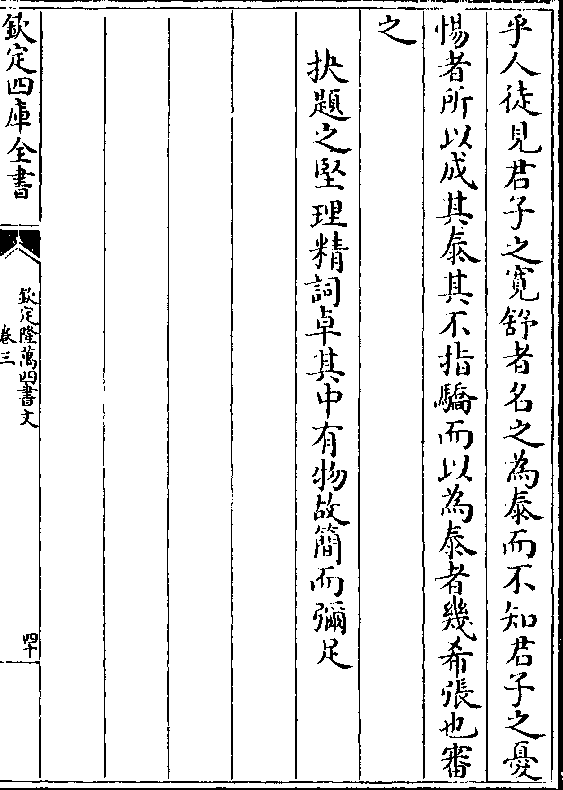 乎人徒見君子之寛舒者名之為泰而不知君子之憂
惕者所以成其泰其不指驕而以為泰者幾希張也審
之
抉題之堅理精詞卓其中有物故簡而彌足
欽定四庫全書
欽定隆萬四書文
卷三
四十